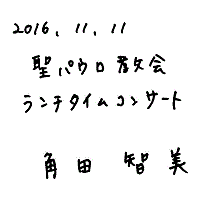 2016.11.11
聖パウロ教会
ランチタイムコンサート
角田 智美